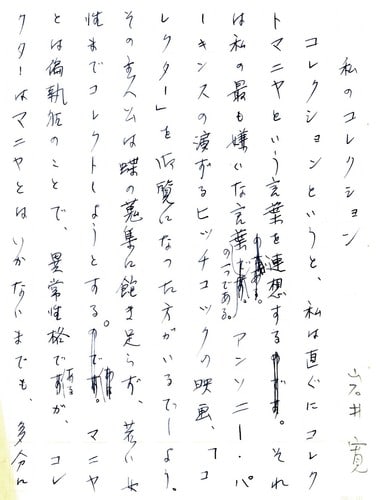 私のコレクション
岩井寛
コレクションというと、私は直ぐにコレク
トマニヤという言葉を連想するのです。それ
は私の最も嫌いな言葉の一つである。アンソニー・パ
ーキンスの演ずるヒッチコックの映画、「コ
レクター」を御覧になった方がいるでしょう。
その主人公は蝶の蒐集に飽き足らず、若い女
性までコレクトしようとする。マニヤ
とは偏執狂のことで、異常性格であるが、コレ
クターはマニヤとはいかないまでも、多分に